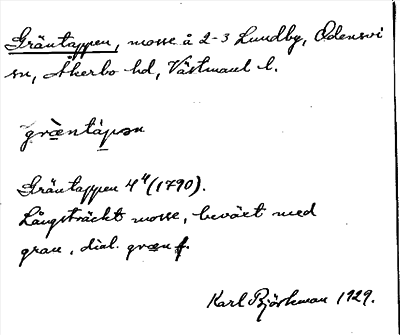 Gräntappen, mosse å 2-3 Lundby, Odensvi
sn, Åkerbo hd, Västmanl l.
græntäpən
Gräntappen 4⁴ (1790).
Långsträckt mosse, beväxt med
gran, dial. græn f.
Karl Björkman 1929.